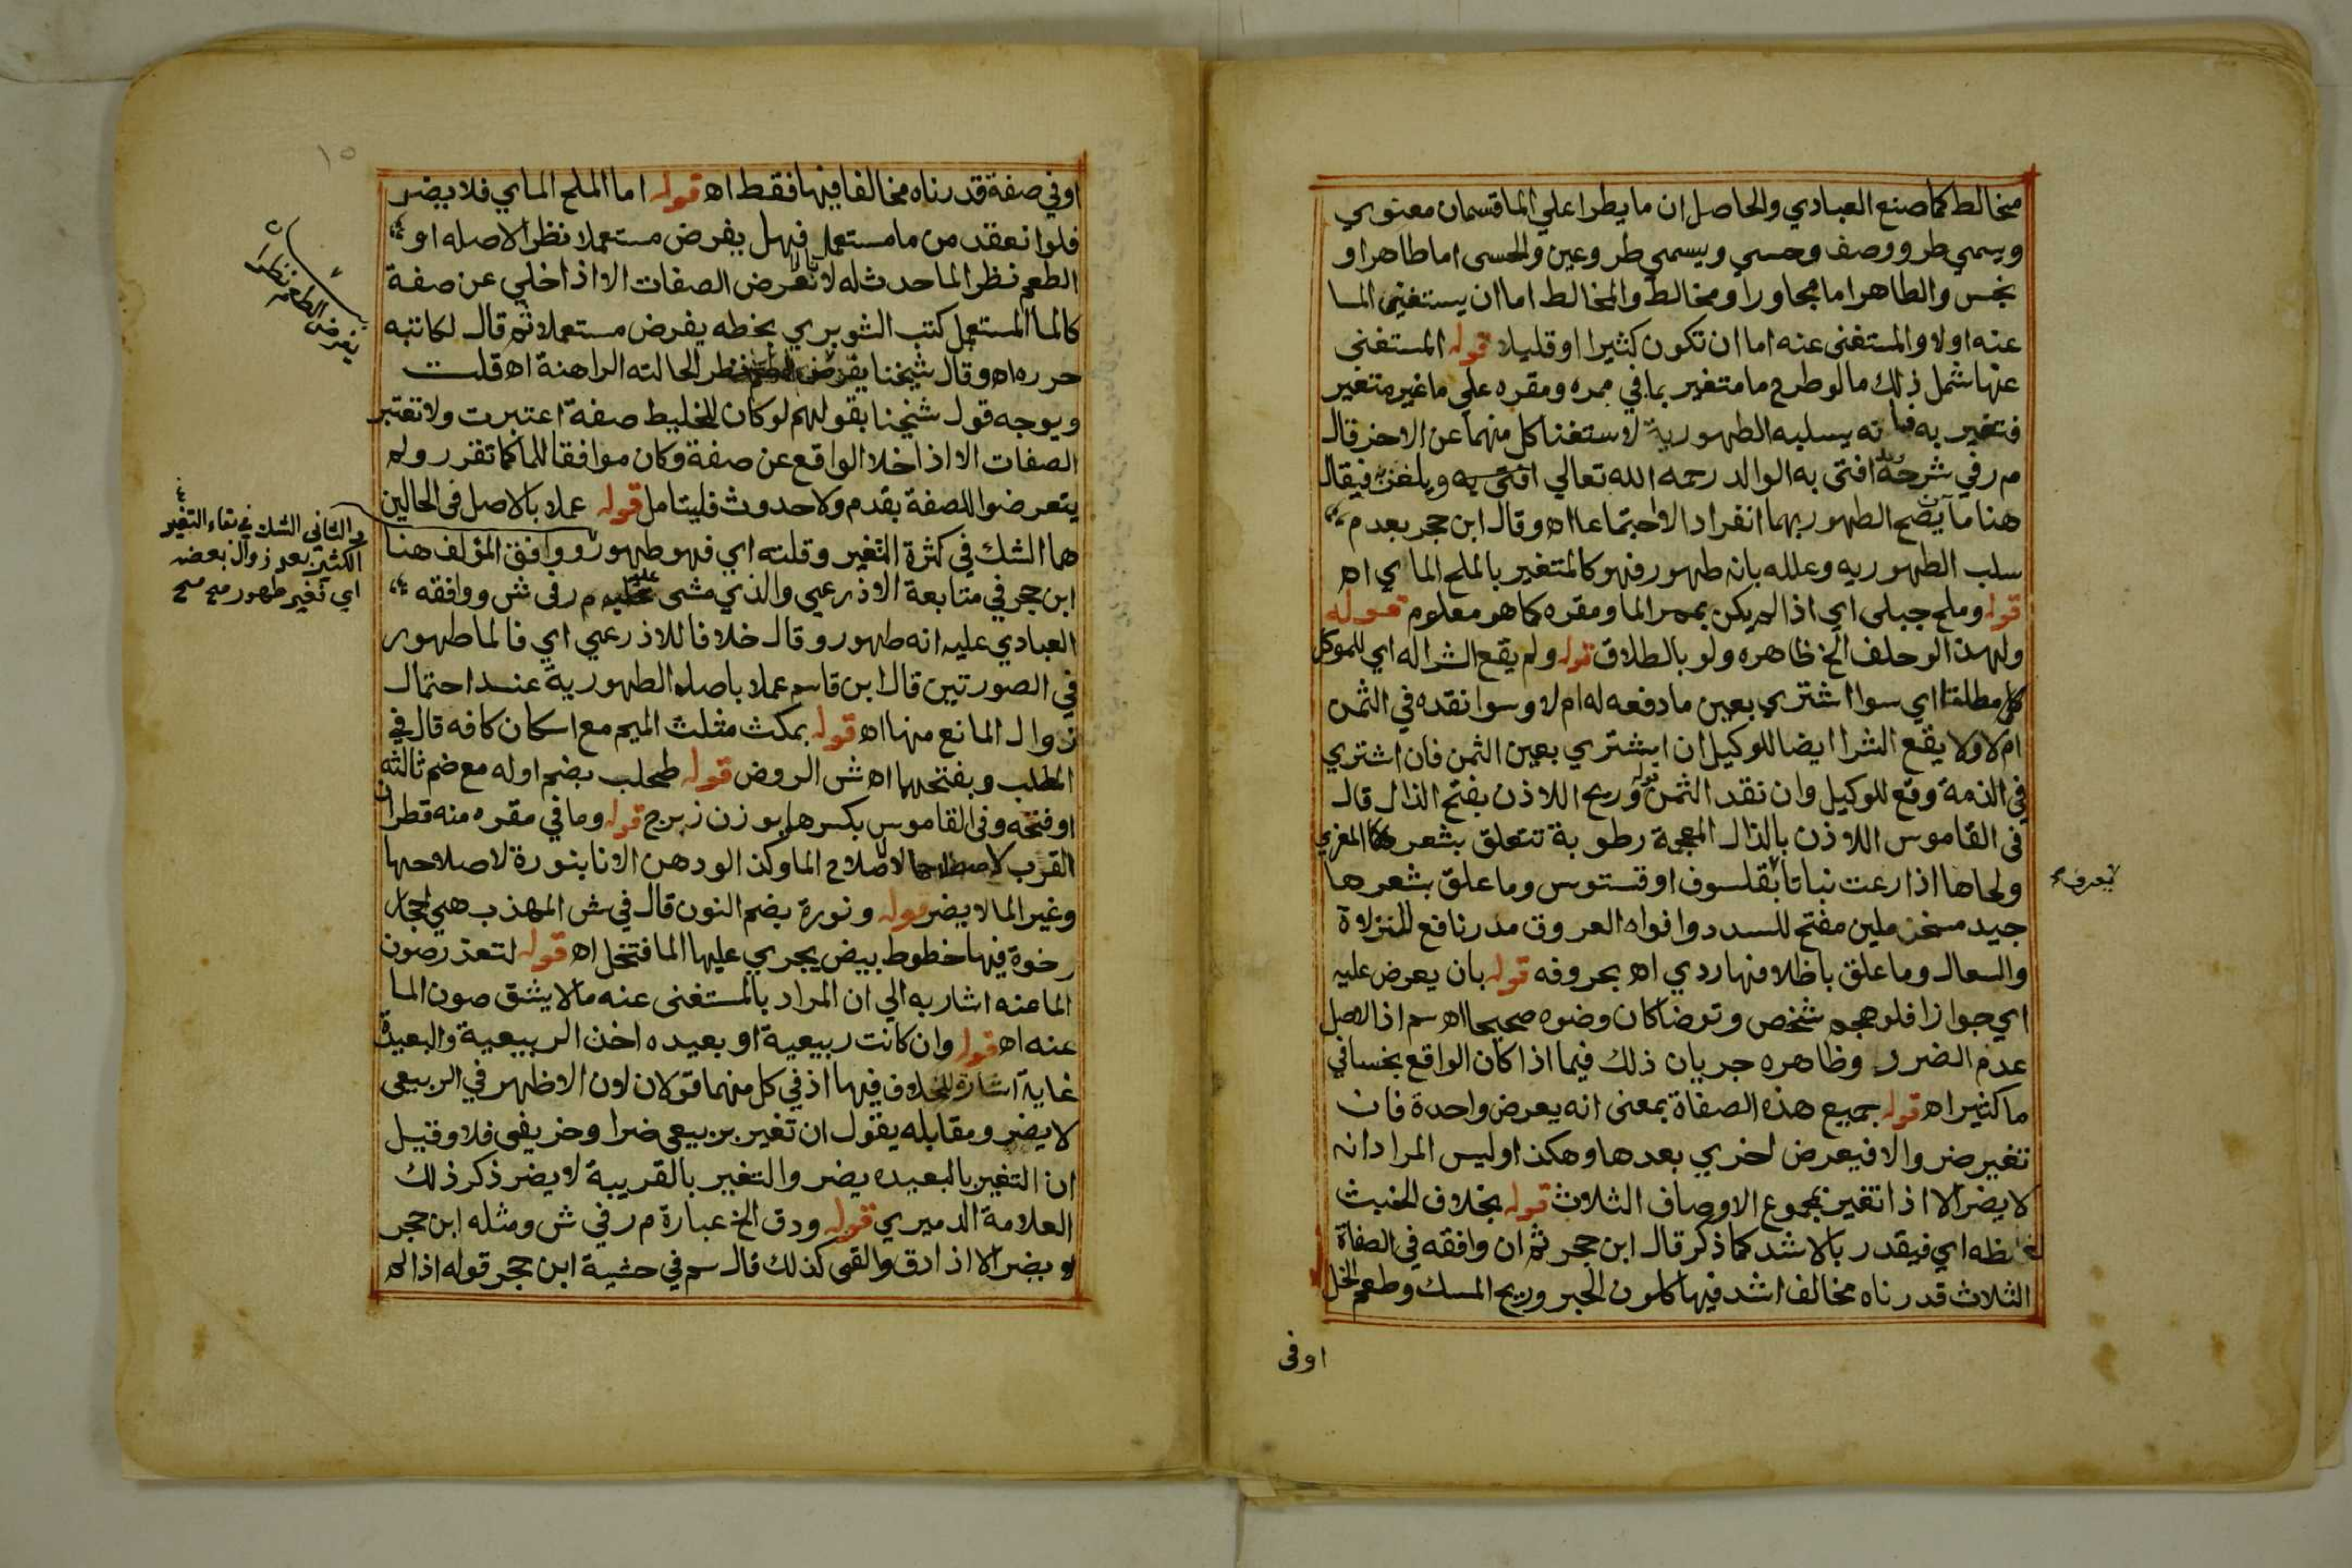 مخالط كما صنع العبادي والحاصل ان ما يطرا علي الما قسمان معنوي
ويسمي طرو وصف وحسي ويسمي طرو عين والحسى اما طاهر او
نجس والطاهر اما مجاور او مخالط والمخالط اما ان يستغنى الما
عنه اولا والمستغنى عنه اما ان تكون كثيرا او قليلا قوله المستغنى
عنها شمل ذلك ما لو طرح ما متغير بما في ممره ومقره علي ما غير متغير
فتغير به يسلبه الطهورية لاستغنا كل منهما عن الاخر قال
م ر في شرحه افتى به الوالد رحمه الله تعالي ويلغز فيقال
هنا ما آن يصح الطهور بهما انفرادا لا اجتماعا اه وقال ابن حجر بعدم
سلب الطهوريه وعلله بانه طهور فهو كالمتغير بالملح الماي اه
قوله وملح جبلى اي اذا لم يكن بممر الما ومقره كما هو معلوم قوله
ولهذا لو حلف الخ ظاهره ولو بالطلاق قوله ولم يقع الشرا له اي للموكل
مطلقا اي سوا اشتري بعين ما دفعه له ام لا وسوا نقده في الثمن
ام لا ولا يقع الشرا ايضا للوكيل ان اشتري بعين الثمن فان اشتري
في الذمة وقع للوكيل وان نقد الثمن قوله وريح اللاذن بفتح الذال قال
فى القاموس اللاذن بالذال المعجمة رطوبة تتعلق بشعر المغزي
ولحاها اذا رعت نباتا يعرف بقلسوف او قستوس وما علق بشعرها
جيد مسخن ملين مفتح للسدد وافواه العروق مدر نافع للنزلات
والسعال وما علق باظلافها ردي اه بحروفه قوله بان يعرض عليه
اي جوازا فلو هجم شخص وتوضا كان وضوه صحيحا اه سم اذ الاصل
عدم الضرر وظاهره جريان ذلك فيما اذا كان الواقع نجسا في
ما كثير اه قوله جميع هذه الصفاة بمعنى انه يعرض واحدة فان
تغير ضر والا فيعرض اخري بعدها وهكذا وليس المراد انه
لا يضر الا اذا تغير بمجموع الاوصاف الثلاث قوله بخلاف الخبث
لغلظه اي فيقدر بالاشد كما ذكر قال ابن حجر ثم ان وافقه في الصفاة
الثلاث قدرناه مخالف اشد فيها كلون الحبر وريح المسك وطعم الخل
اوفى
يعرف
١٥
اوفي صفة قدرناه مخالفا فيها فقط اه قوله اما الملح الماي فلا يضر
فلو انعقد من ما مستعمل فهل يفرض مستعملا نظرا لاصله او
الطعم نظرا لما حدث له لا تعرض الصفات الا اذا خلي عن صفة
كالما المستعمل كتب الشوبري بخطه يفرض مستعملا ثم قال لكاتبه
حرره اه وقال شيخنا نظرا لحالته الراهنة اه قلت
ويوجه قول شيخنا بقولهم لو كان للخليط صفة اعتبرت ولا تعتبر
الصفات الا اذا خلا الواقع عن صفة وكان موافقا للما كما تقرر ولم
يتعرضوا للصفة بقدم ولا حدوث فليتامل قوله عملا بالاصل فى الحالين
هما الشك في كثرة التغير وقلته اي فهو طهور ووافق المؤلف هنا
ابن حجر في متابعة الاذرعي والذي مشى عليه م ر فى ش ووافقه
العبادي عليه انه طهور وقال خلافا للاذرعي اي فالما طهور
في الصورتين قال ابن قاسم عملا باصله الطهورية عند احتمال
زوال المانع منها اه قوله بمكث مثلث الميم مع اسكان كافه قال في
المطلب وبفتحهما اه ش الروض قوله طحلب بضم اوله مع ضم ثالثه
او فتحه وفى القاموس بكسرها بوزن زبرج قوله وما في مقره منه قطران
القرب لاصلاح الما وكذا لو دهن الانا بنورة لاصلاحها
وغير الما لا يضر قوله ونورة بضم النون قال في ش المهذب هي احجار
رخوة فيها خطوط بيض يجري عليها الما فتنحل اه قوله لتعذر صون
الما عنه اشار به الي ان المراد بالمستغنى عنه ما لا يشق صون الما
عنه اه قوله وان كانت ربيعية او بعيده اخذ الربيعية والبعيدة
غاية اشارة للخلاف فيها اذ في كل منهما قولان لان الاظهر في الربيعى
لا يضر ومقابله يقول ان تغير بربيعى ضر او خريفى فلا وقيل
ان التغير بالبعيده يضر والتغير بالقريبة لا يضر ذكر ذلك
العلامة الدميري قوله ودق الخ عبارة م ر في ش ومثله ابن حجر
ولا يضر الا اذا دق والقى كذلك قال سم في حشية ابن حجر قوله اذا لم
والثاني الشك في بقاء التغير
الكثير بعد زوال بعضه
اي تغير طهور صح صح